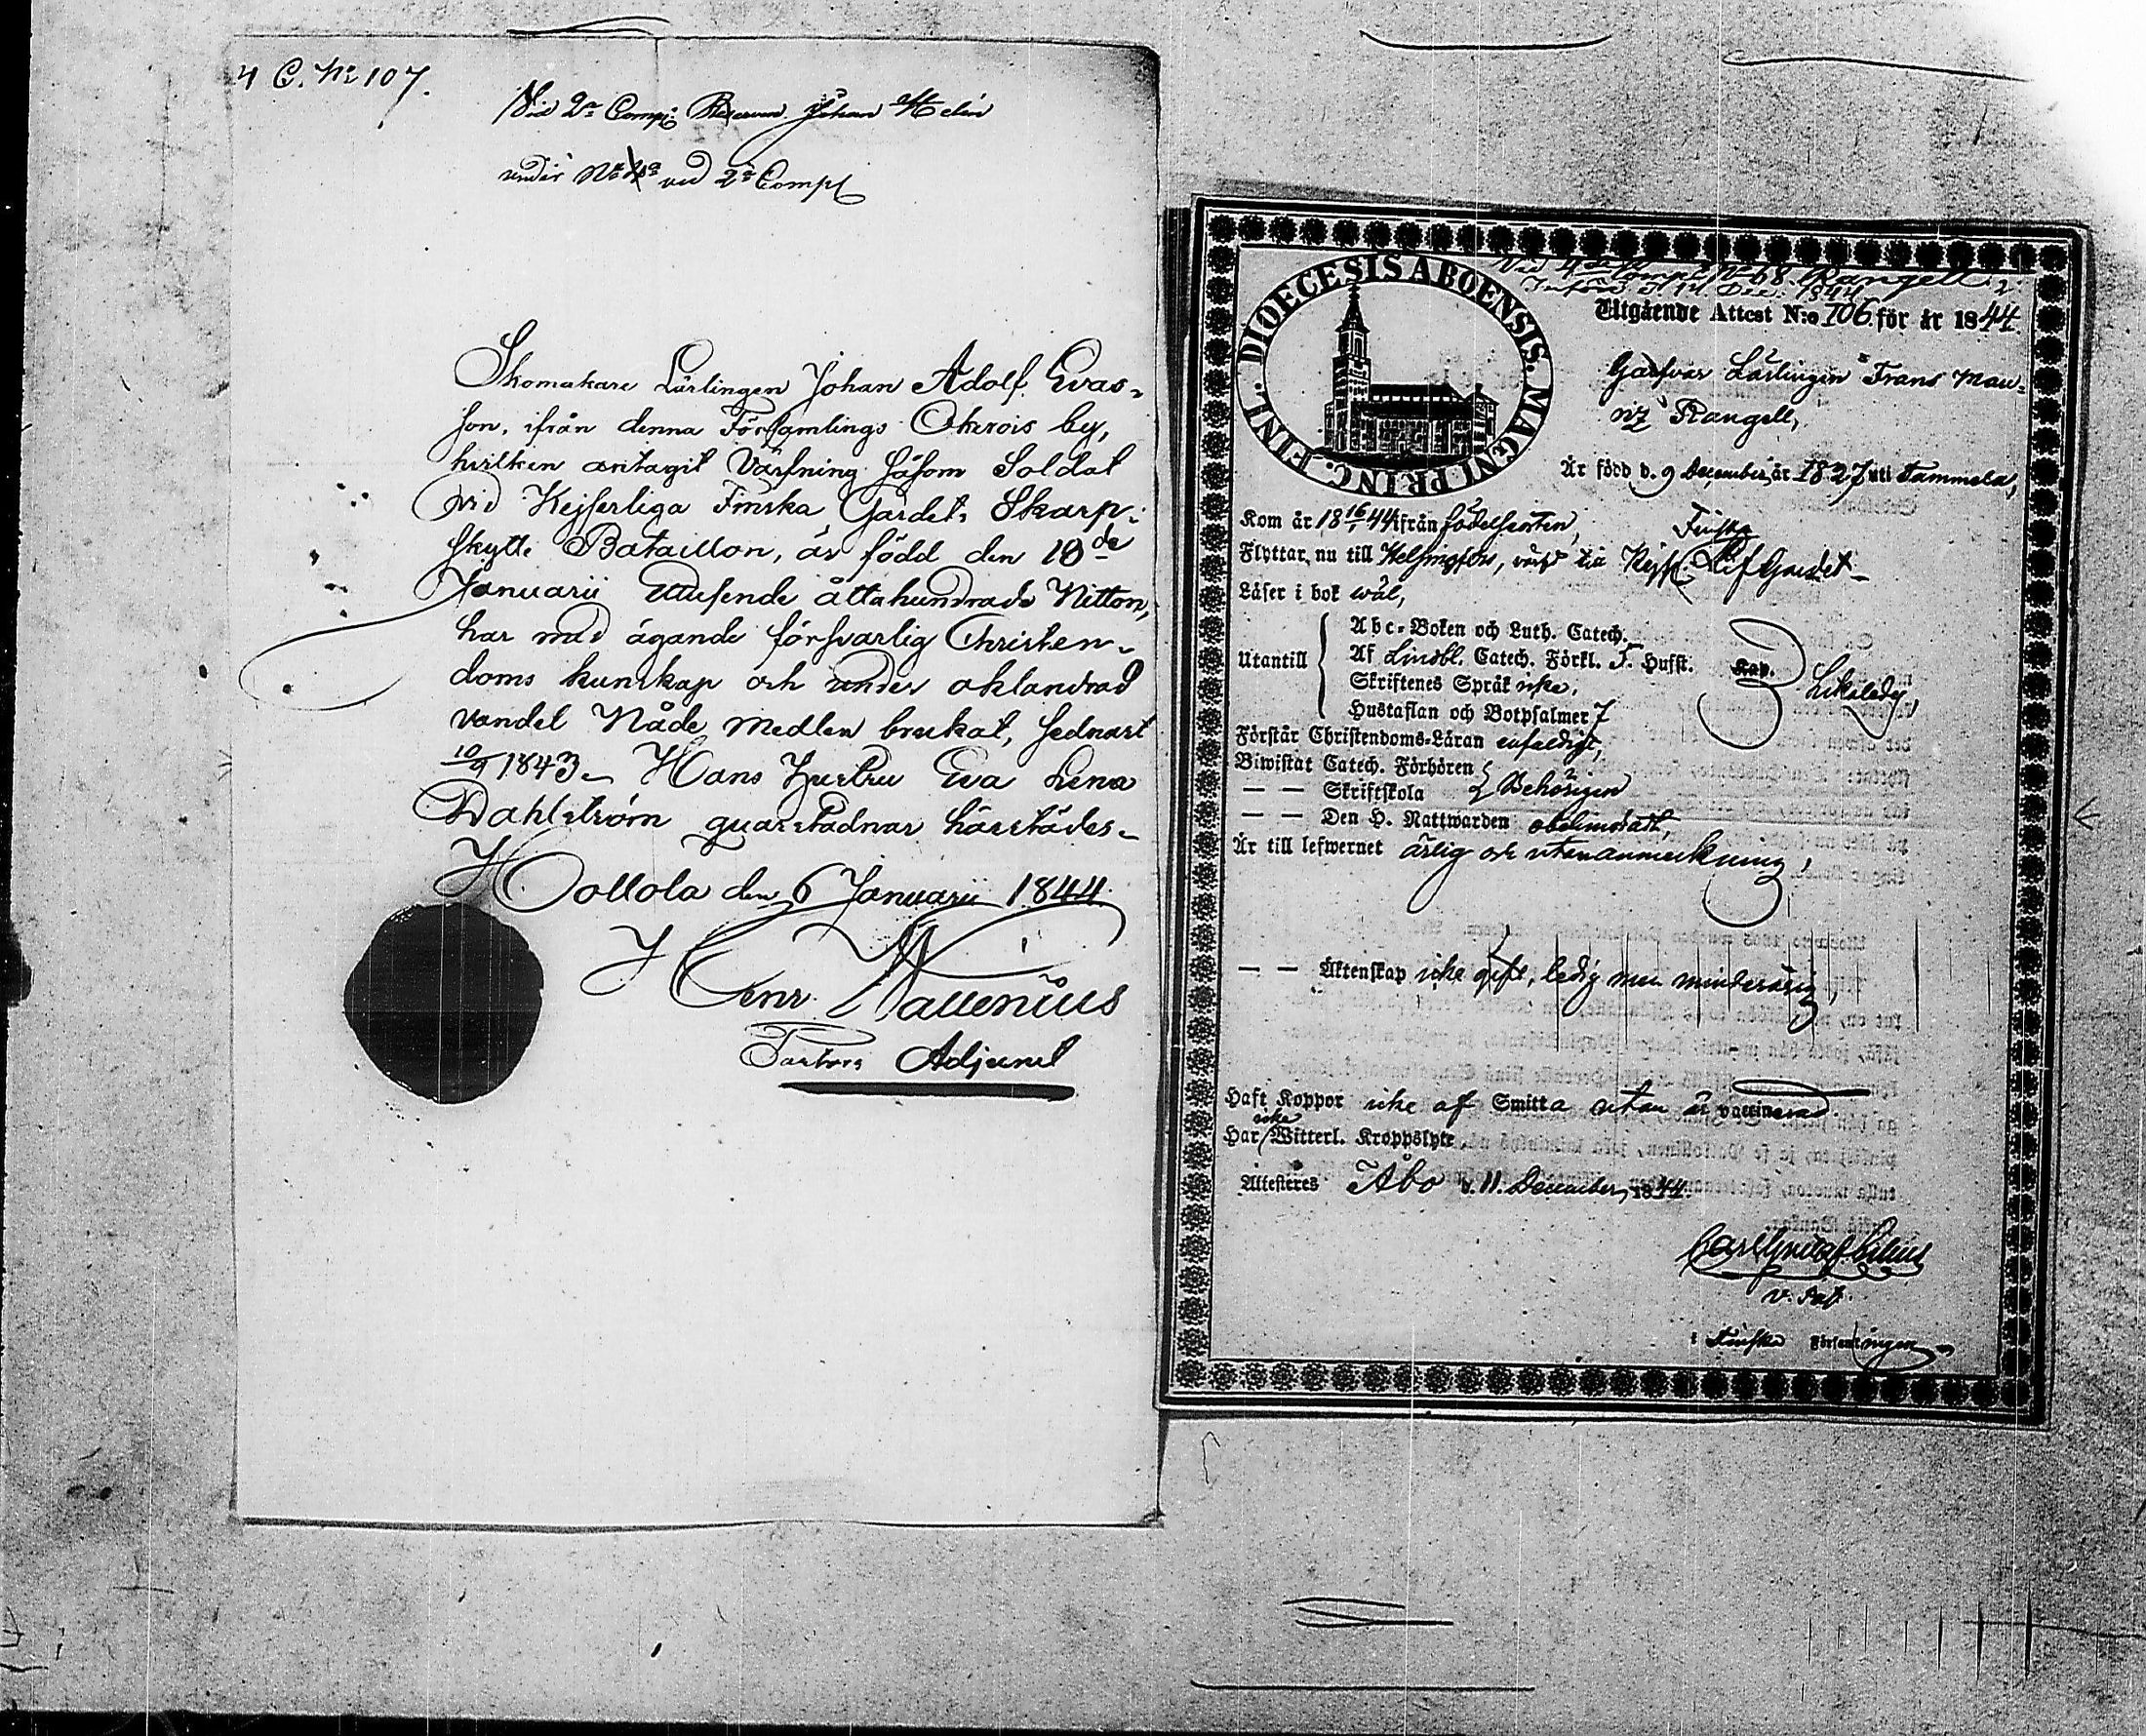 4 C. No 107.
Vid 2a Comp: Reserven Johan Helin
under No ved 2a Comp
Skomakare Lärlingen Johan Adolf Evas-
son, ifrån denna Församlings Okerois by,
hvilken antagit Värfning såsom Soldat
vid Kejserliga Finska Gardets Skarp-
skytte Bataillon, är född den 18de
Januarii Ettusende åttahundrade Nitton,
har med ägande försvarlig Christen-
doms kunskap och under oklandrad
vandel Nåde Medlen brukat, sednast
10/9 1843. Hans Hustru Eva Lena
Dahlström quarstadnar härstädes.
Hollola den 6 Januarii 1844.
Henr. Wallenius
Pastors Adjunct
DIOECESIS ABOENSIS. MAGNI PRINC. FINL.
Vid 4de Comp. No 68. Rangell
Införd d. 14 Dec: 1844
Utgående Attest N:o 106 för år 1844.
Garfvar Lärlingen Frans Mau-
ritz Rangell,
Är född d. 9 December år 1827 uti Tammela,
Kom år 18 16/1 44 ifrån födelseorten,
Finska
Flyttar nu till Helsingfors, till Kejs. Lif Gardet
Läser i bok wäl,
Abc-Boken och Luth. Catech.
Utantill
Af Lindbl. Catech. Förkl. T. Husst. Kap.
Likaledes,
Skriftenes Språk icke,
Hustaflan och Botpsalmer 7
Förstår Christendoms-Läran enfaldigt,
Biwistat Catech. Förhören
— — Skriftskola } Behörigen
— — Den H. Nattwarden oklandradt,
Är till lefwernet ärlig och utan anmerkning,
— — Äktenskap icke gift, ledig men minderårig,
Haft Koppor icke af Smitta utan är vaccinerad.
icke
Har Witterl. Kroppslyte.
Attesteres Åbo d. 11. December 1844.
Carl Gustaf
v. Past.
i Finska Församlingen